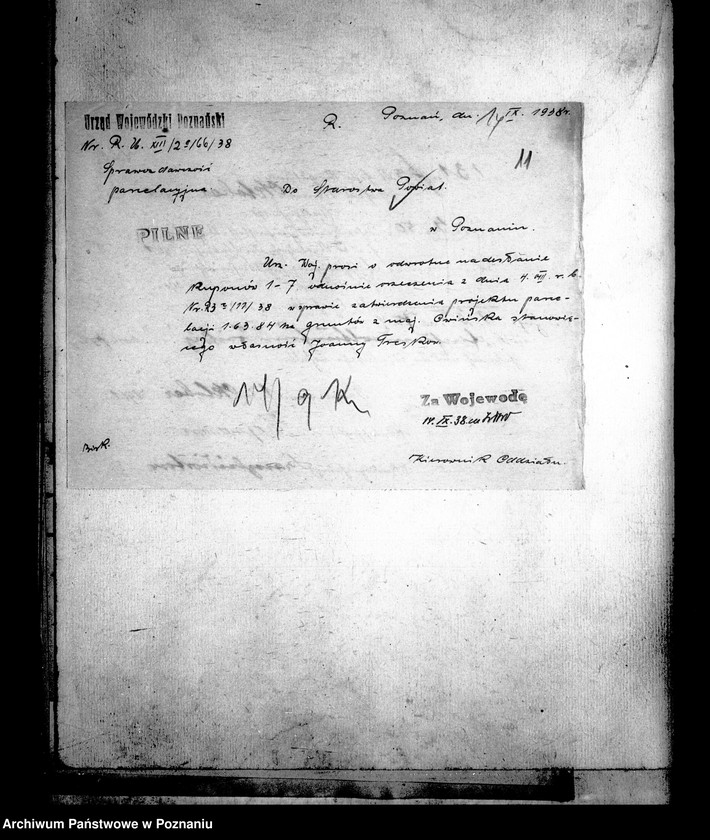 Urząd Wojewódzki Poznański
R.
Poznań, dn. 14 IX. 1938 r.
Nr. R. U. XIII/2
/66/38
11
Sprawozdawczość
parcelacyjna
Do Starostwa Powiat.
w Poznaniu.
PILNE
Urz. Woj. prosi o odwrotne nadesłanie
kuponów 1-7 odnośnie orzeczenia z dnia 4. VII. r. b.
/38 w sprawie zatwierdzenia projektu parce-
lacji 1.63.84 ha gruntów z maj. Owińska stanowią-
cego własność Joanny Treskow.
14/9
Za Wojewodę
IX. 38.
Kierownik Oddziału.
Archiwum Państwowe w Poznaniu